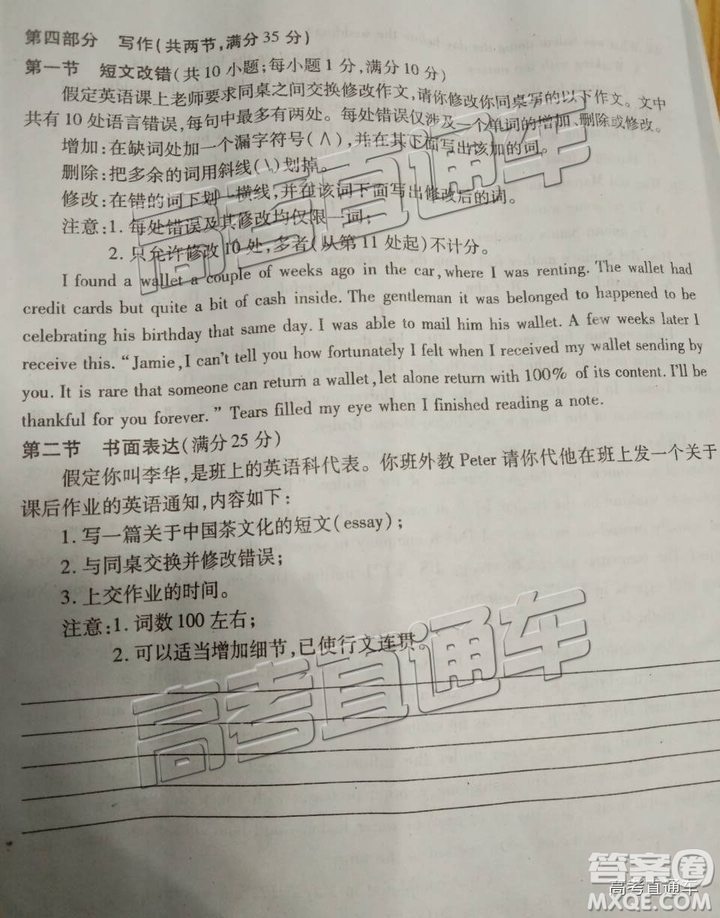 第四部分 写作(共两节,满分 35 分)
第一节 短文改错(共 10 小题;每小题 1 分,满分 10 分)
假定英语课上老师要求同桌之间交换修改作文,请你修改你同桌写的以下作文。文中
共有 10 处语言错误,每句中最多有两处。每处错误仅涉及一个单词的增加、删除或修改。
增加:在缺词处加一个漏字符号(∧),并在其下面写出该加的词。
删除:把多余的词用斜线(\)划掉。
修改:在错的词下划一横线,并在该词下面写出修改后的词。
注意:1. 每处错误及其修改均仅限一词;
2. 只允许修改 10 处,多者(从第 11 处起)不计分。
I found a wallet a couple of weeks ago in the car, where I was renting. The wallet had
credit cards but quite a bit of cash inside. The gentleman it was belonged to happened to be
celebrating his birthday that same day. I was able to mail him his wallet. A few weeks later I
receive this. “Jamie, I can't tell you how fortunately I felt when I received my wallet sending by
you. It is rare that someone can return a wallet, let alone return with 100% of its content. I'll be
thankful for you forever. ” Tears filled my eye when I finished reading a note.
第二节 书面表达(满分 25 分)
假定你叫李华,是班上的英语科代表。你班外教 Peter 请你代他在班上发一个关于
课后作业的英语通知,内容如下:
1. 写一篇关于中国茶文化的短文(essay);
2. 与同桌交换并修改错误;
3. 上交作业的时间。
注意:1. 词数 100 左右;
2. 可以适当增加细节,已使行文连贯。
高考直通车
高考直通车
答案圈
高考直通车
MXQE.COM